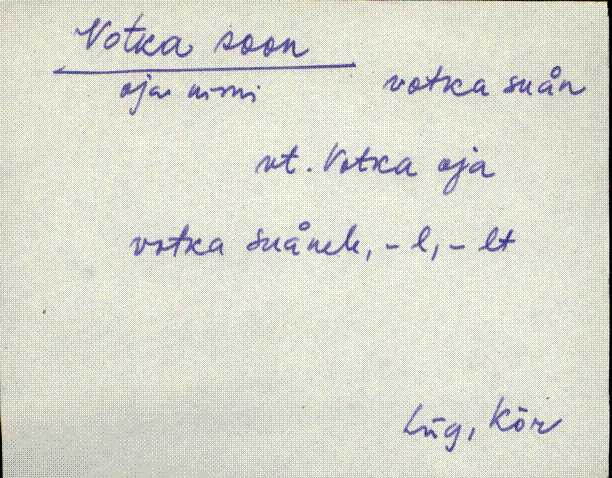 Votka soon
oja nimi
votka suån
vt. Votka oja
votka suånele, -l, -lt
Lüg, Kõr